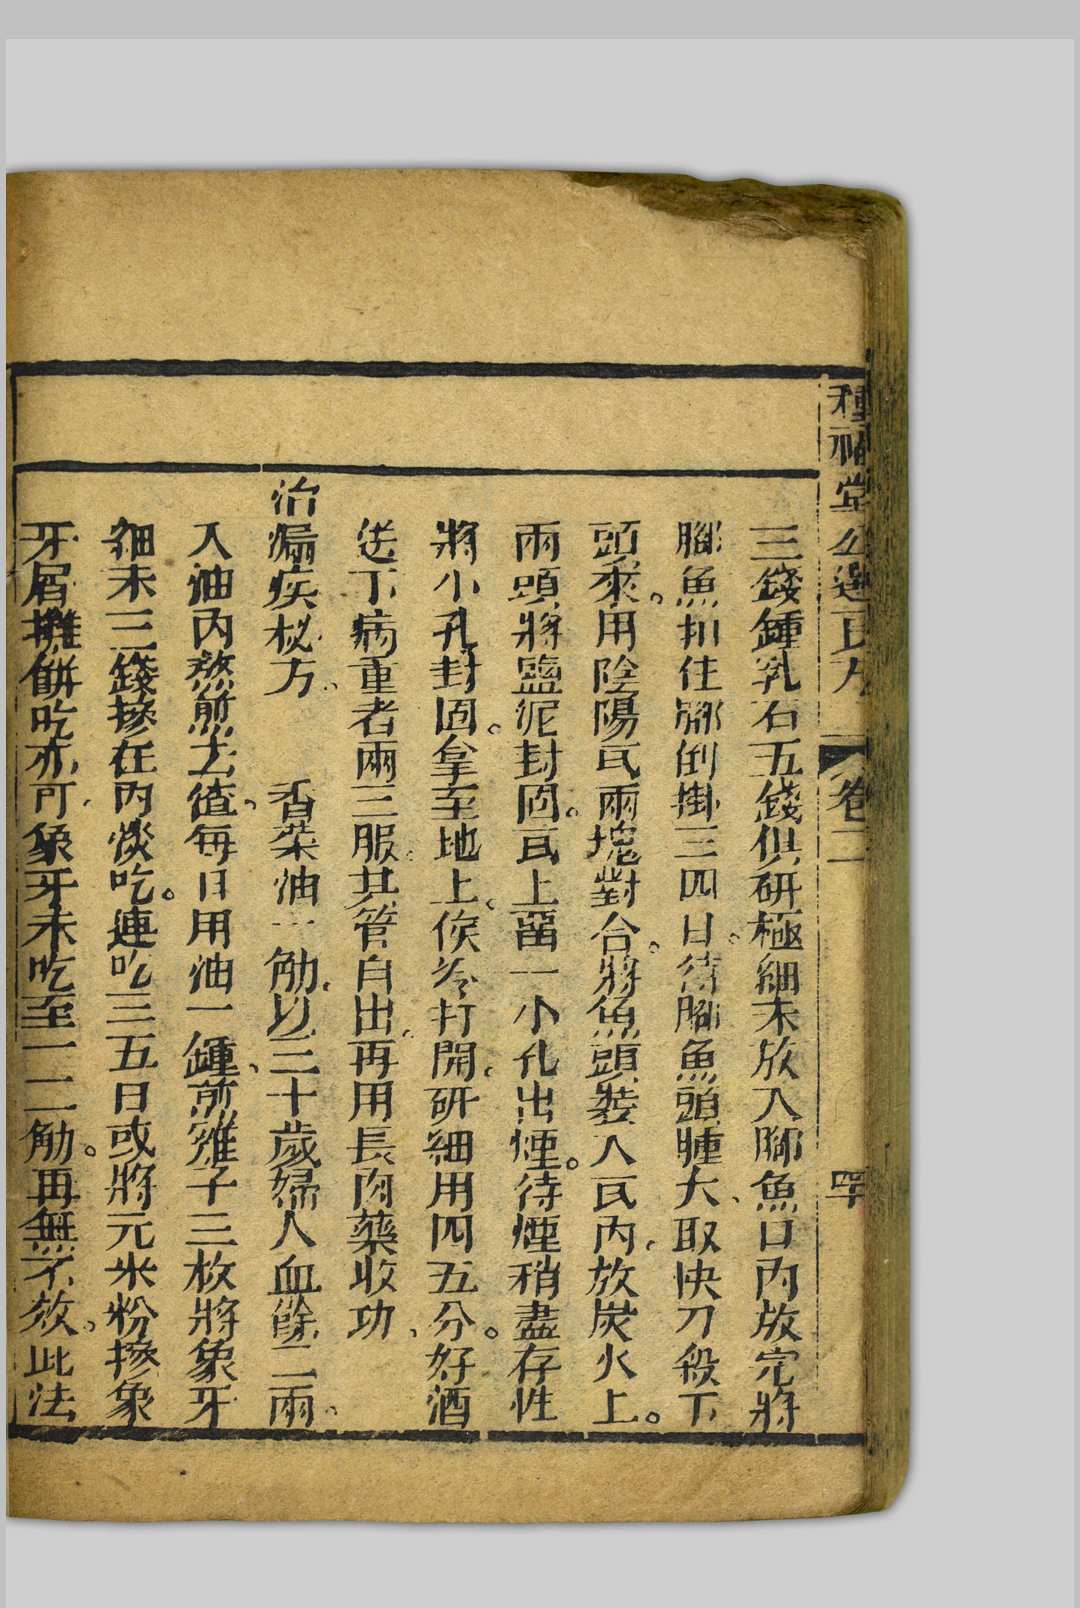 種福堂公選良方 卷二 四十
三錢鍾乳石五錢俱研極細末放入腳魚口內放完將
腳魚扣住腳倒掛三四日待腳魚頭腫大取快刀殺下
頭來。用陰陽瓦兩塊對合。將魚頭裝入瓦內。放炭火上。
兩頭將鹽泥封固。瓦上畱一小孔出煙。待煙稍盡存性
將小孔封固。拿至地上。候冷打開。研細用四五分。好酒
送下病重者兩三服其管自出。再用長肉藥收功
治漏疾秘方。 香菜油一觔。以三十歲婦人血餘二兩。
入油內熬煎去渣。每日用油一鍾、煎雞子三枚將象牙
細末三錢摻在內淡吃。連吃三五日或將元米粉摻象
牙屑攤餅吃亦可。象牙末吃至一二觔。再無不效。此法